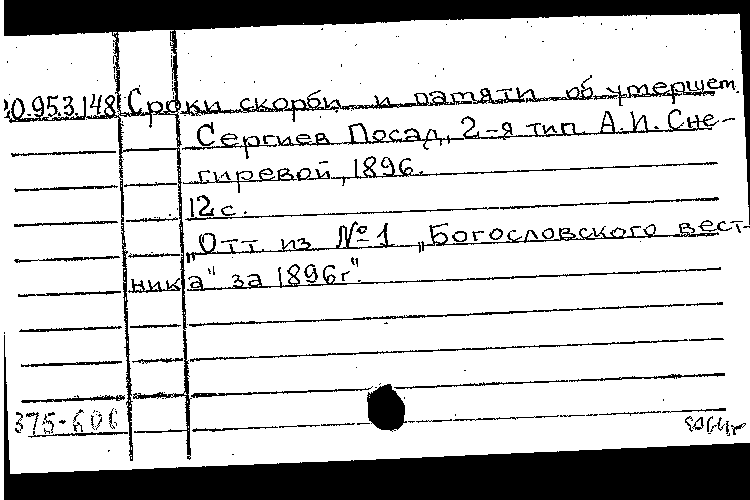 20.953.148 Сроки скорби и памяти об умершем.
Сергиев Посад, 2-я тип. А.И. Сне-
гиревой, 1896.
12 с.
„Отт. из №1 „Богословского вест-
ника" за 1896г".
375-606